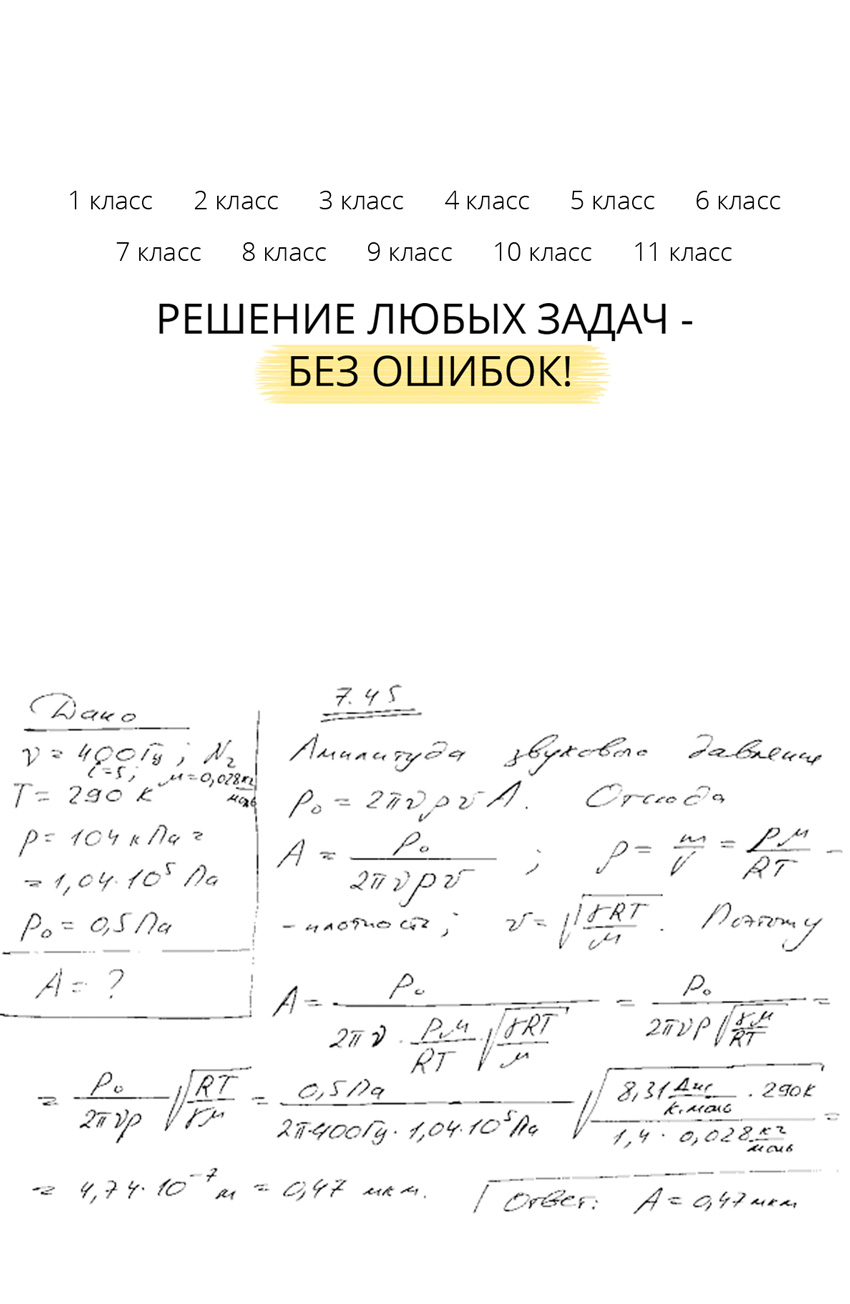 1 класс 2 класс 3 класс 4 класс 5 класс 6 класс
7 класс 8 класс 9 класс 10 класс 11 класс
РЕШЕНИЕ ЛЮБЫХ ЗАДАЧ -
БЕЗ ОШИБОК!
7.45
Дано
ν = 400 Гц ; N₂
i=5; μ=0,028 кг/моль
T = 290 K
p = 104 кПа =
= 1,04·10⁵ Па
p₀ = 0,5 Па
A = ?
Амплитуда звукового давления
p₀ = 2πνρvA. Отсюда
A = p₀/(2πνρv) ; ρ = m/V = pμ/RT –
- плотность; v = √(γRT/μ). Поэтому
A = p₀/(2πν · pμ/RT √(γRT/μ)) = p₀/(2πνp√(γμ/RT)) =
= p₀/(2πνp) √(RT/γμ) = 0,5 Па/(2π·400Гц · 1,04·10⁵ Па) √((8,31 Дж/(К·моль) · 290К)/(1,4 · 0,028 кг/моль)) =
= 4,74·10⁻⁷ м = 0,47 мкм. Ответ: A = 0,47 мкм